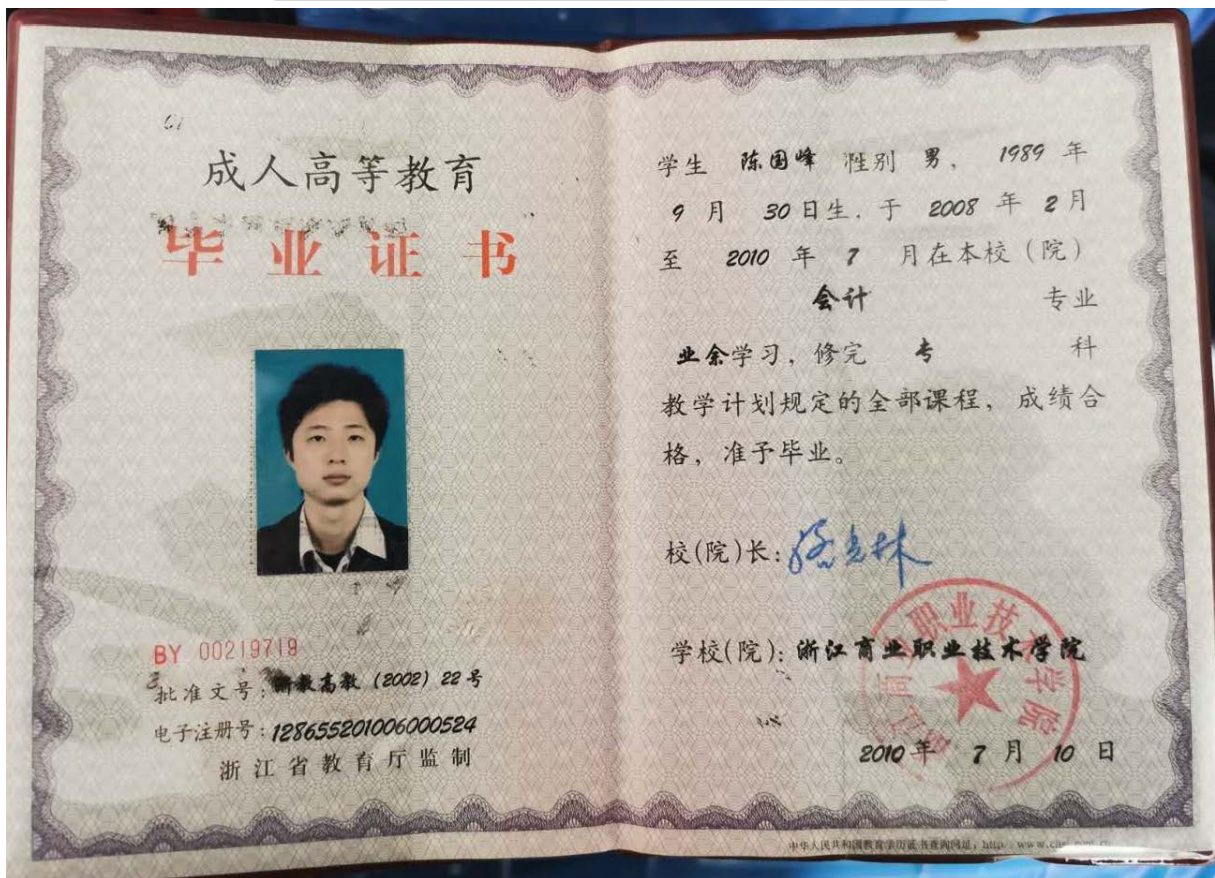 成人高等教育
毕业证书
BY 00219719
批准文号：浙教高教（2002）22号
电子注册号：128655201006000524
浙江省教育厅监制
学生 陈国峰 性别 男， 1989 年
9 月 30日生．于 2008 年 2月
至 2010 年 7 月在本校（院）
会计 专业
业余学习，修完 专 科
教学计划规定的全部课程，成绩合
格，准予毕业。
校(院)长：
学校(院)：浙江商业职业技术学院
浙江商业职业技术学院
2010年 7月 10日
中华人民共和国教育部学历证书查询网址：http://www.